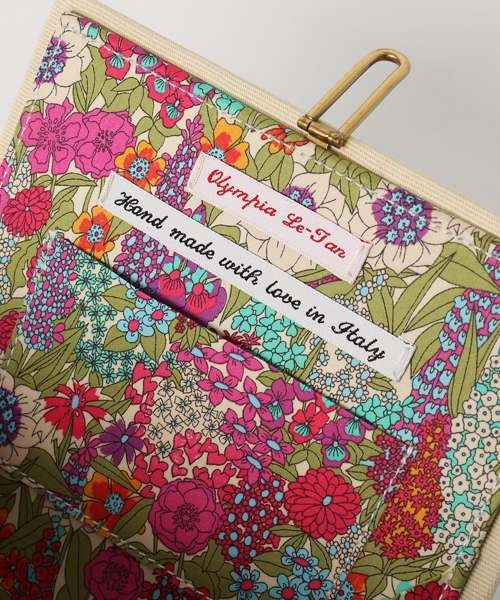 Olympia Le-Tan
Hand made with love in Italy